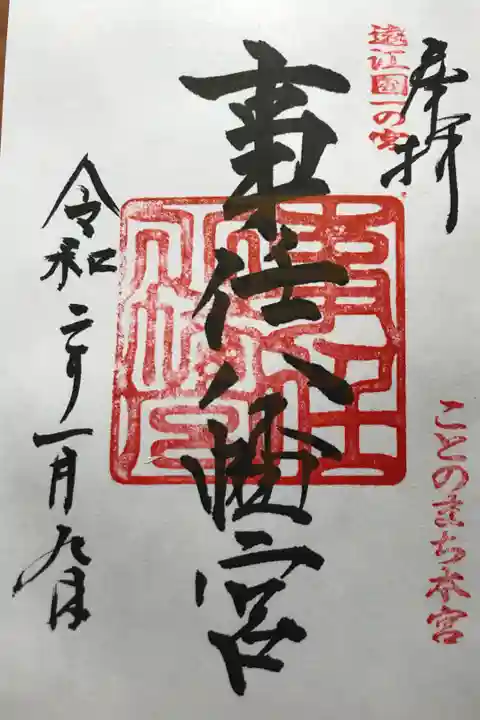 奉拝
遠江國一の宮
ことのまち本宮
事任八幡宮
事任八幡宮
令和二年一月九日